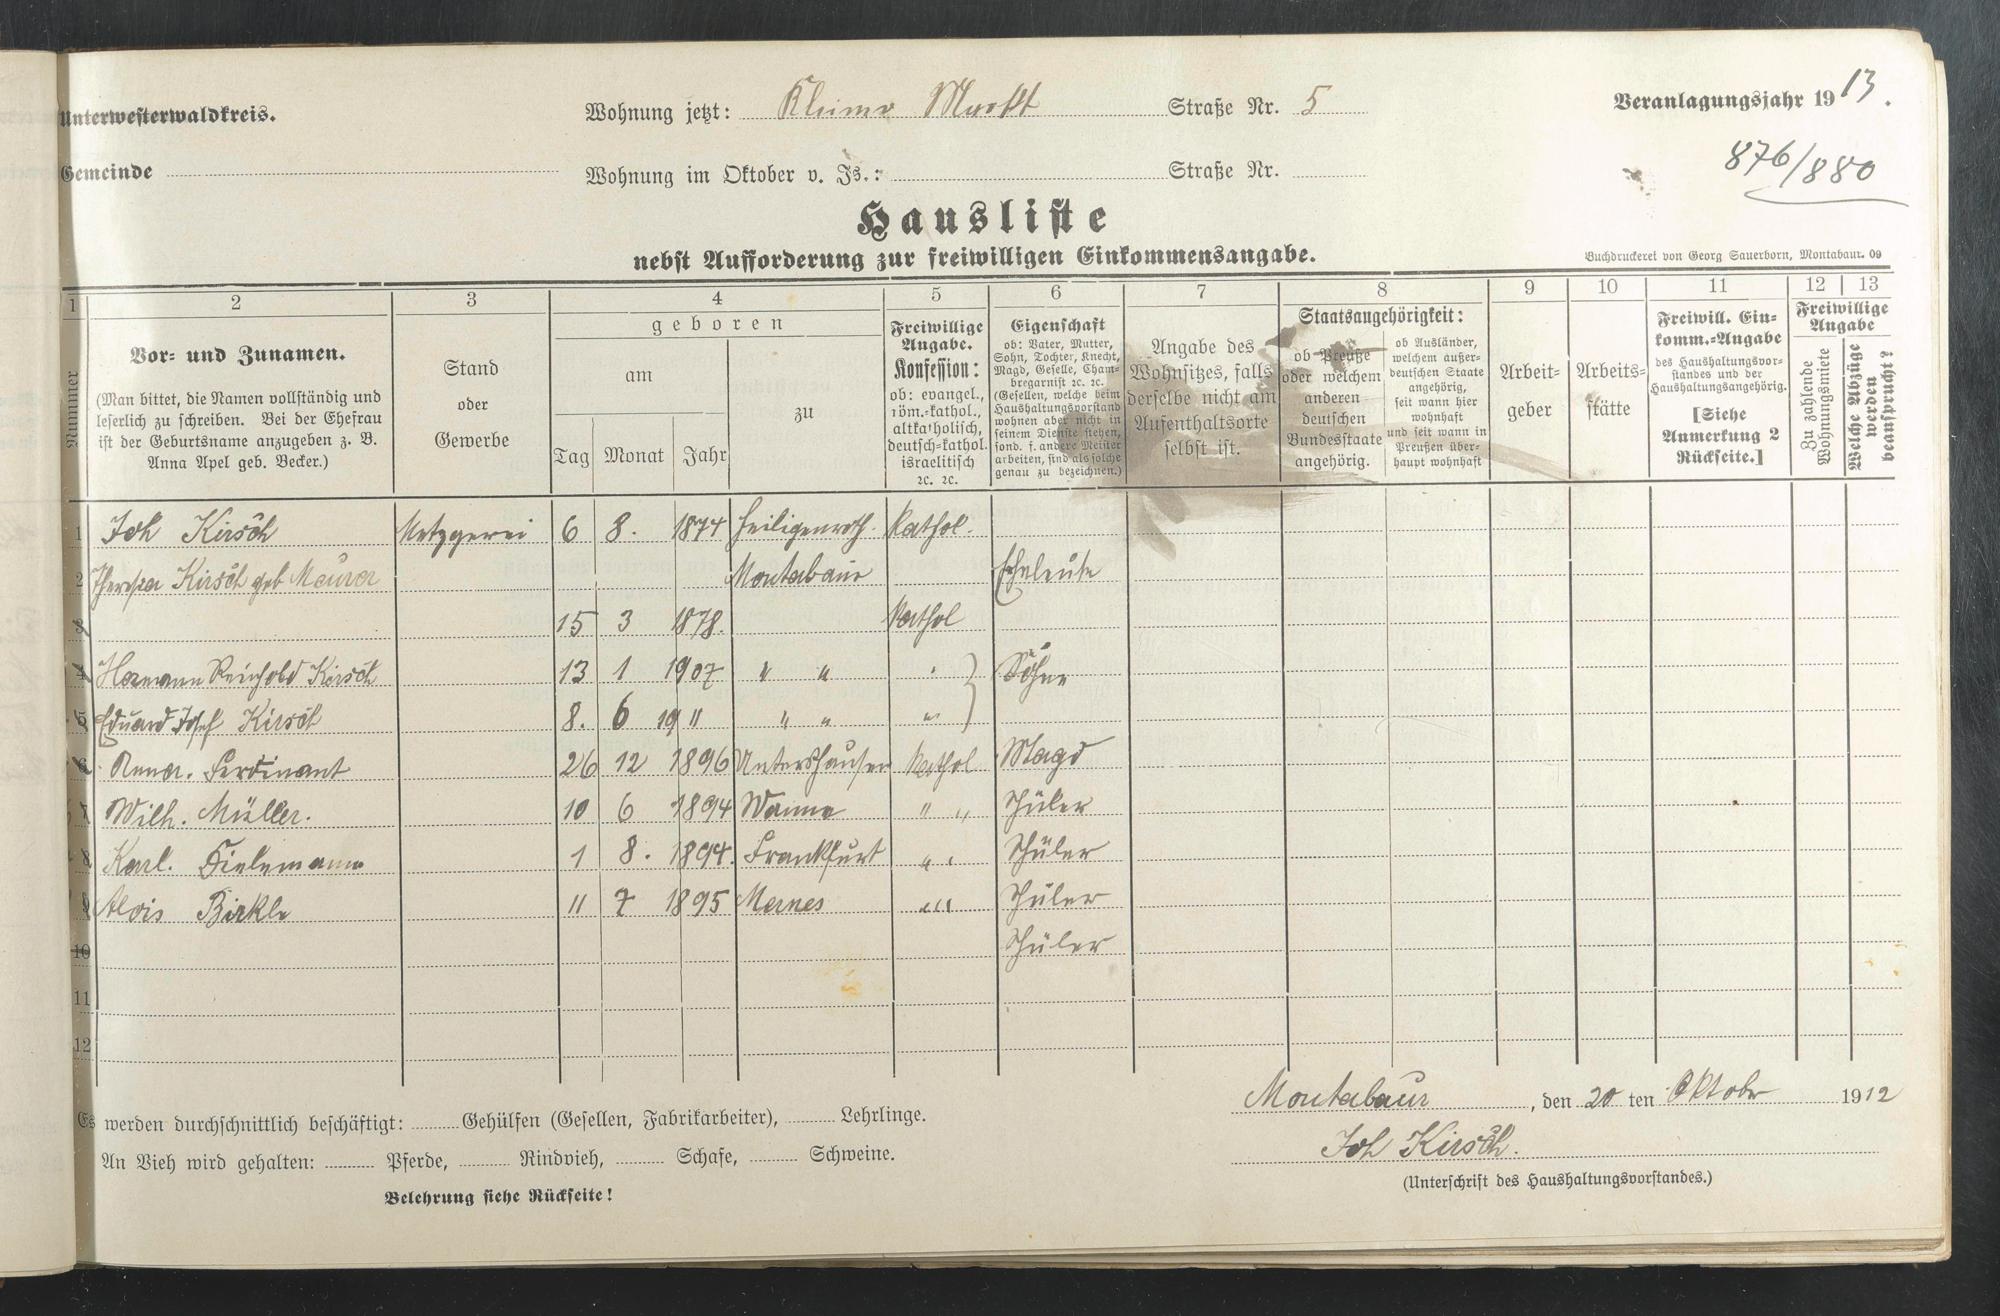 Unterwesterwaldkreis.
Wohnung jetzt: Kleiner Markt Straße Nr. 5
Veranlagungsjahr 1913.
Gemeinde
Wohnung im Oktober v. Js.: Straße Nr.
876/880
Hausliste
nebst Aufforderung zur freiwilligen Einkommensangabe.
Buchdruckerei von Georg Sauerborn, Montabaur. 09
1 2 3 4 5 6 7 8 9 10 11 12 13
Nummer
Vor- und Zunamen.
(Man bittet, die Namen vollständig und
leserlich zu schreiben. Bei der Ehefrau
ist der Geburtsname anzugeben z. B.
Anna Apel geb. Becker.)
Stand
oder
Gewerbe
geboren
am
zu
Tag Monat Jahr
Freiwillige
Angabe.
Konfession:
ob: evangel.,
röm.-kathol.,
altkatholisch,
deutsch-kathol.
israelitisch
ꝛc. ꝛc.
Eigenschaft
ob: Vater, Mutter,
Sohn, Tochter, Knecht,
Magd, Geselle, Cham-
bregarnist ꝛc. ꝛc.
(Gesellen, welche beim
Haushaltungsvorstand
wohnen aber nicht in
seinem Dienste stehen,
sond. f. andere Meister
arbeiten, sind als solche
genau zu bezeichnen.)
Angabe des
Wohnsitzes, falls
derselbe nicht am
Aufenthaltsorte
selbst ist.
Staatsangehörigkeit:
ob Preuße
oder welchem
anderen
deutschen
Bundesstaate
angehörig.
ob Ausländer,
welchem außer-
deutschen Staate
angehörig,
seit wann hier
wohnhaft
und seit wann in
Preußen über-
haupt wohnhaft
Arbeit-
geber
Arbeits-
stätte
Freiwill. Ein-
komm.-Angabe
des Haushaltungsvor-
standes und der
Haushaltungsangehörig.
[Siehe
Anmerkung 2
Rückseite.]
Freiwillige
Angabe
Zu zahlende
Wohnungsmiete
Welche Abzüge
werden
beansprucht?
1 Joh Kirsch Metzgerei 6 8. 1874 Heiligenroth. Kathol.
2 Theresia Kirsch geb Maurer Montabaur Eheleute
3 15 3 1878. Kathol
4 Hermann Reinhold Kirsch 13 1 1907 " " " } Söhne
5 Eduard Josef Kirsch 8. 6 1911 " " "
6 Anna. Ferdinant 26 12 1896 Untershausen Kathol Magd
7 Wilh. Müller. 10 6 1894 Wanne " " Schüler
8 Karl. Tielemann 1 8. 1894. Frankfurt " " Schüler
9 Alois Birkle 11 7 1895 Mernes " " Schüler
10 Schüler
11
12
Montabaur, den 20 ten Oktobr 1912
Es werden durchschnittlich beschäftigt: Gehülfen (Gesellen, Fabrikarbeiter), Lehrlinge.
Joh Kirsch.
An Vieh wird gehalten: Pferde, Rindvieh, Schafe, Schweine.
(Unterschrift des Haushaltungsvorstandes.)
Belehrung siehe Rückseite!